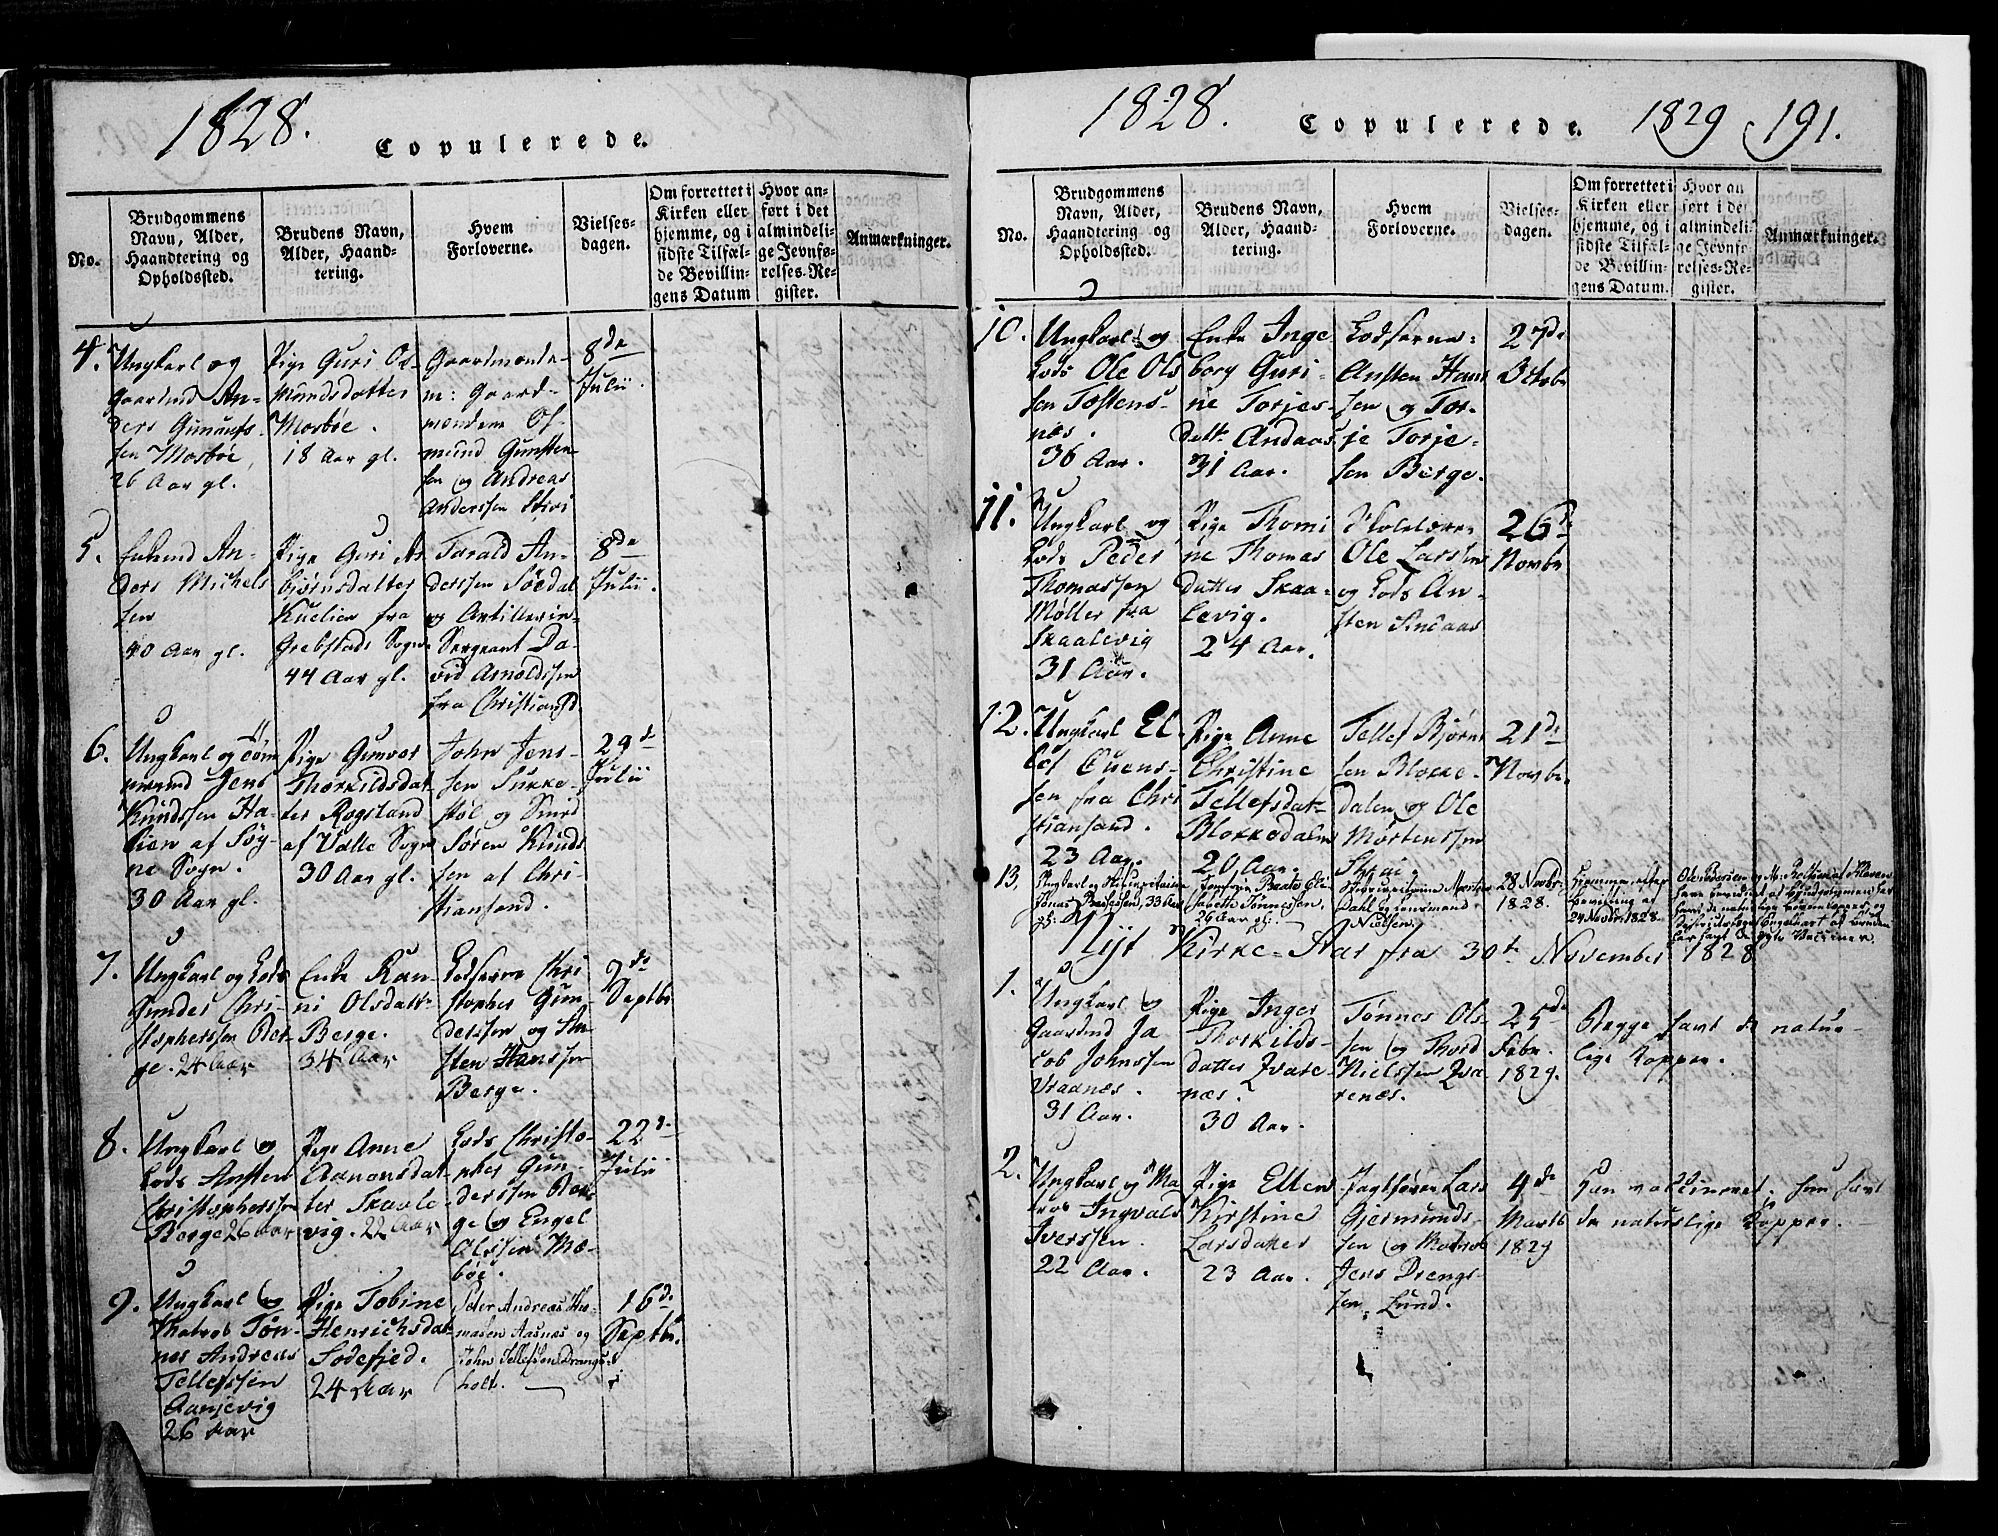 1828.
Copulerede.
No.
Brudgommens
Navn, Alder,
Haandtering og
Opholdssted.
Brudens Navn,
Alder, Haand-
tering.
Hvem
Forloverne.
Vielses-
dagen.
Om forrettet i
Kirken eller
hjemme, og i
sidste Tilfæl-
de Bevillin-
gens Datum
Hvor an-
ført i det
almindeli-
ge Jevnfø-
relses-Re-
gister.
Anmærkninger.
4.
Ungkarl og
Gaardmd An-
ders Gunulfs-
sen Mosbøe,
26 Aar gl.
Pige Guri Os-
mundsdatter
Mosbøe.
18 Aar gl.
Gaardmænde-
n: Gaard-
mændene Os-
mund Gunsten-
sen og Andreas
Anderssen Stroi
8de
Julii.
5.
Enkemd An-
ders Michels
sen
40 Aar gl.
Pige Guri As-
biørnsdatter
Kuelien fra
Grebstads Sogn
44 Aar gl.
Torald An-
derssen Søedal
og Artillerie-
Sergeant Da-
vid Arnoldssen
fra Christiansd.
8de
Julii.
6.
Ungkarl og Tøm
mermd Jens
Knudssen Ha-
lien af Søg-
ne Sogn.
30 Aar gl.
Pige Gunvor
Thorkildsdat-
ter Rogstand
af Valle Sogn
30 Aar gl.
John Jens-
sen Lukke-
støl og Smed
Søren Knuds
sen af Chri-
stiansand.
29de
Julii
7.
Ungkarl og Lods
Gunder Chri-
stopherssen Ber-
ge. 24 Aar
Enke Ran-
ni Olsdattr
Berge.
34 Aar
Lodserne Chri
stopher Gun-
derssen og An-
sten Hanssen
Berge.
2de
Septbr
8.
Ungkarl og
Lods Ansten
Christopherssen
Berge 26 Aar
Pige Anne
Aanonsdat-
ter Skaale
vig. 22 Aar
Lods Christo-
pher Gun-
derssen Ber-
ge og Engel
Olssen Mæ-
bøe.
22de
Julii
9.
Ungkarl og
Matros Tøn-
nes Andreas
Tellefssen
Aanevig
26 Aar
Pige Tobine
Henrichsdat-
Sodefjed.
24 Aar
Peter Andreas Tho-
massen Aasnæs og
John Tellefsen Drangs-
holt.
16de
Septbr.
1828.
Copulerede.
1829
191.
No.
Brudgommens
Navn, Alder,
Haandtering og
Opholdssted.
Brudens Navn,
Alder, Haand-
tering.
Hvem
Forloverne.
Vielses-
dagen.
Om forrettet i
Kirken eller
hjemme, og i
sidste Tilfæl-
de Bevillin-
gens Datum.
Hvor an
ført i det
almindeli-
ge Jevnfø-
relses-Re-
gister.
Anmærkninger.
10.
Ungkarl og
Lods Ole Ols
sen Tostens-
næs.
36 Aar.
Enke Inge
borg Guri-
ne Torjes-
dattr Andaas
31 Aar.
Lodserne:
Ansten Hans
sen og Tor-
je Torje-
sen Berge.
27de
Octobr
11.
Ungkarl og
Lods Peder
Thomassen
Møller fra
Skaalevig
31 Aar.
Pige Thomi
ne Thomas
datter Skaa-
levig.
24 Aar.
Skolelærer
Ole Larssen
og Lods An-
sten Sindaas
26de
Novbr
12.
Ungkarl El-
lef Evens-
sen fra Chri
stiansand.
23 Aar.
Pige Anne
Christine
Tellefsdat-
Blokkedalen
20 Aar.
Tellef Bjørns
sen Blokke-
dalen og Ole
Mortenssen
Skrui
21de
Novbr.
13.
Ungkarl og
Jonas 33 Aar
gl.
Jomfrue Beate Eli
sabette Tønnessen,
26 Aar gl.
Dahl og Lensmand
Nielsen.
28 Novbr.
1828.
Hjemme, efter
Bevilling af
24 Novbr 1828.
Nyt Kirke-Aar fra 30te November 1828
1.
Ungkarl og
Gaardmd Ja
cob Johnssen
Vraanes.
31 Aar.
Pige Inger
Thorkilds-
datter Qvare-
næs.
30 Aar.
Tønnes Ols-
sen og Thord
Nielssen Qva-
renæs.
25de
Febr.
1829.
Begge havt de natur-
lige Kopper.
2.
Ungkarl og Ma
tros Ingvald
Iverssen.
22 Aar.
Pige Ellen
Kirstine
Larsdatter
23 Aar.
Lars
Gjermunds-
sen og Matros
Jens Drengs-
sen Lund.
4de
Marts
1829
Han vaccineret, hun havt
de naturlige Kopper.